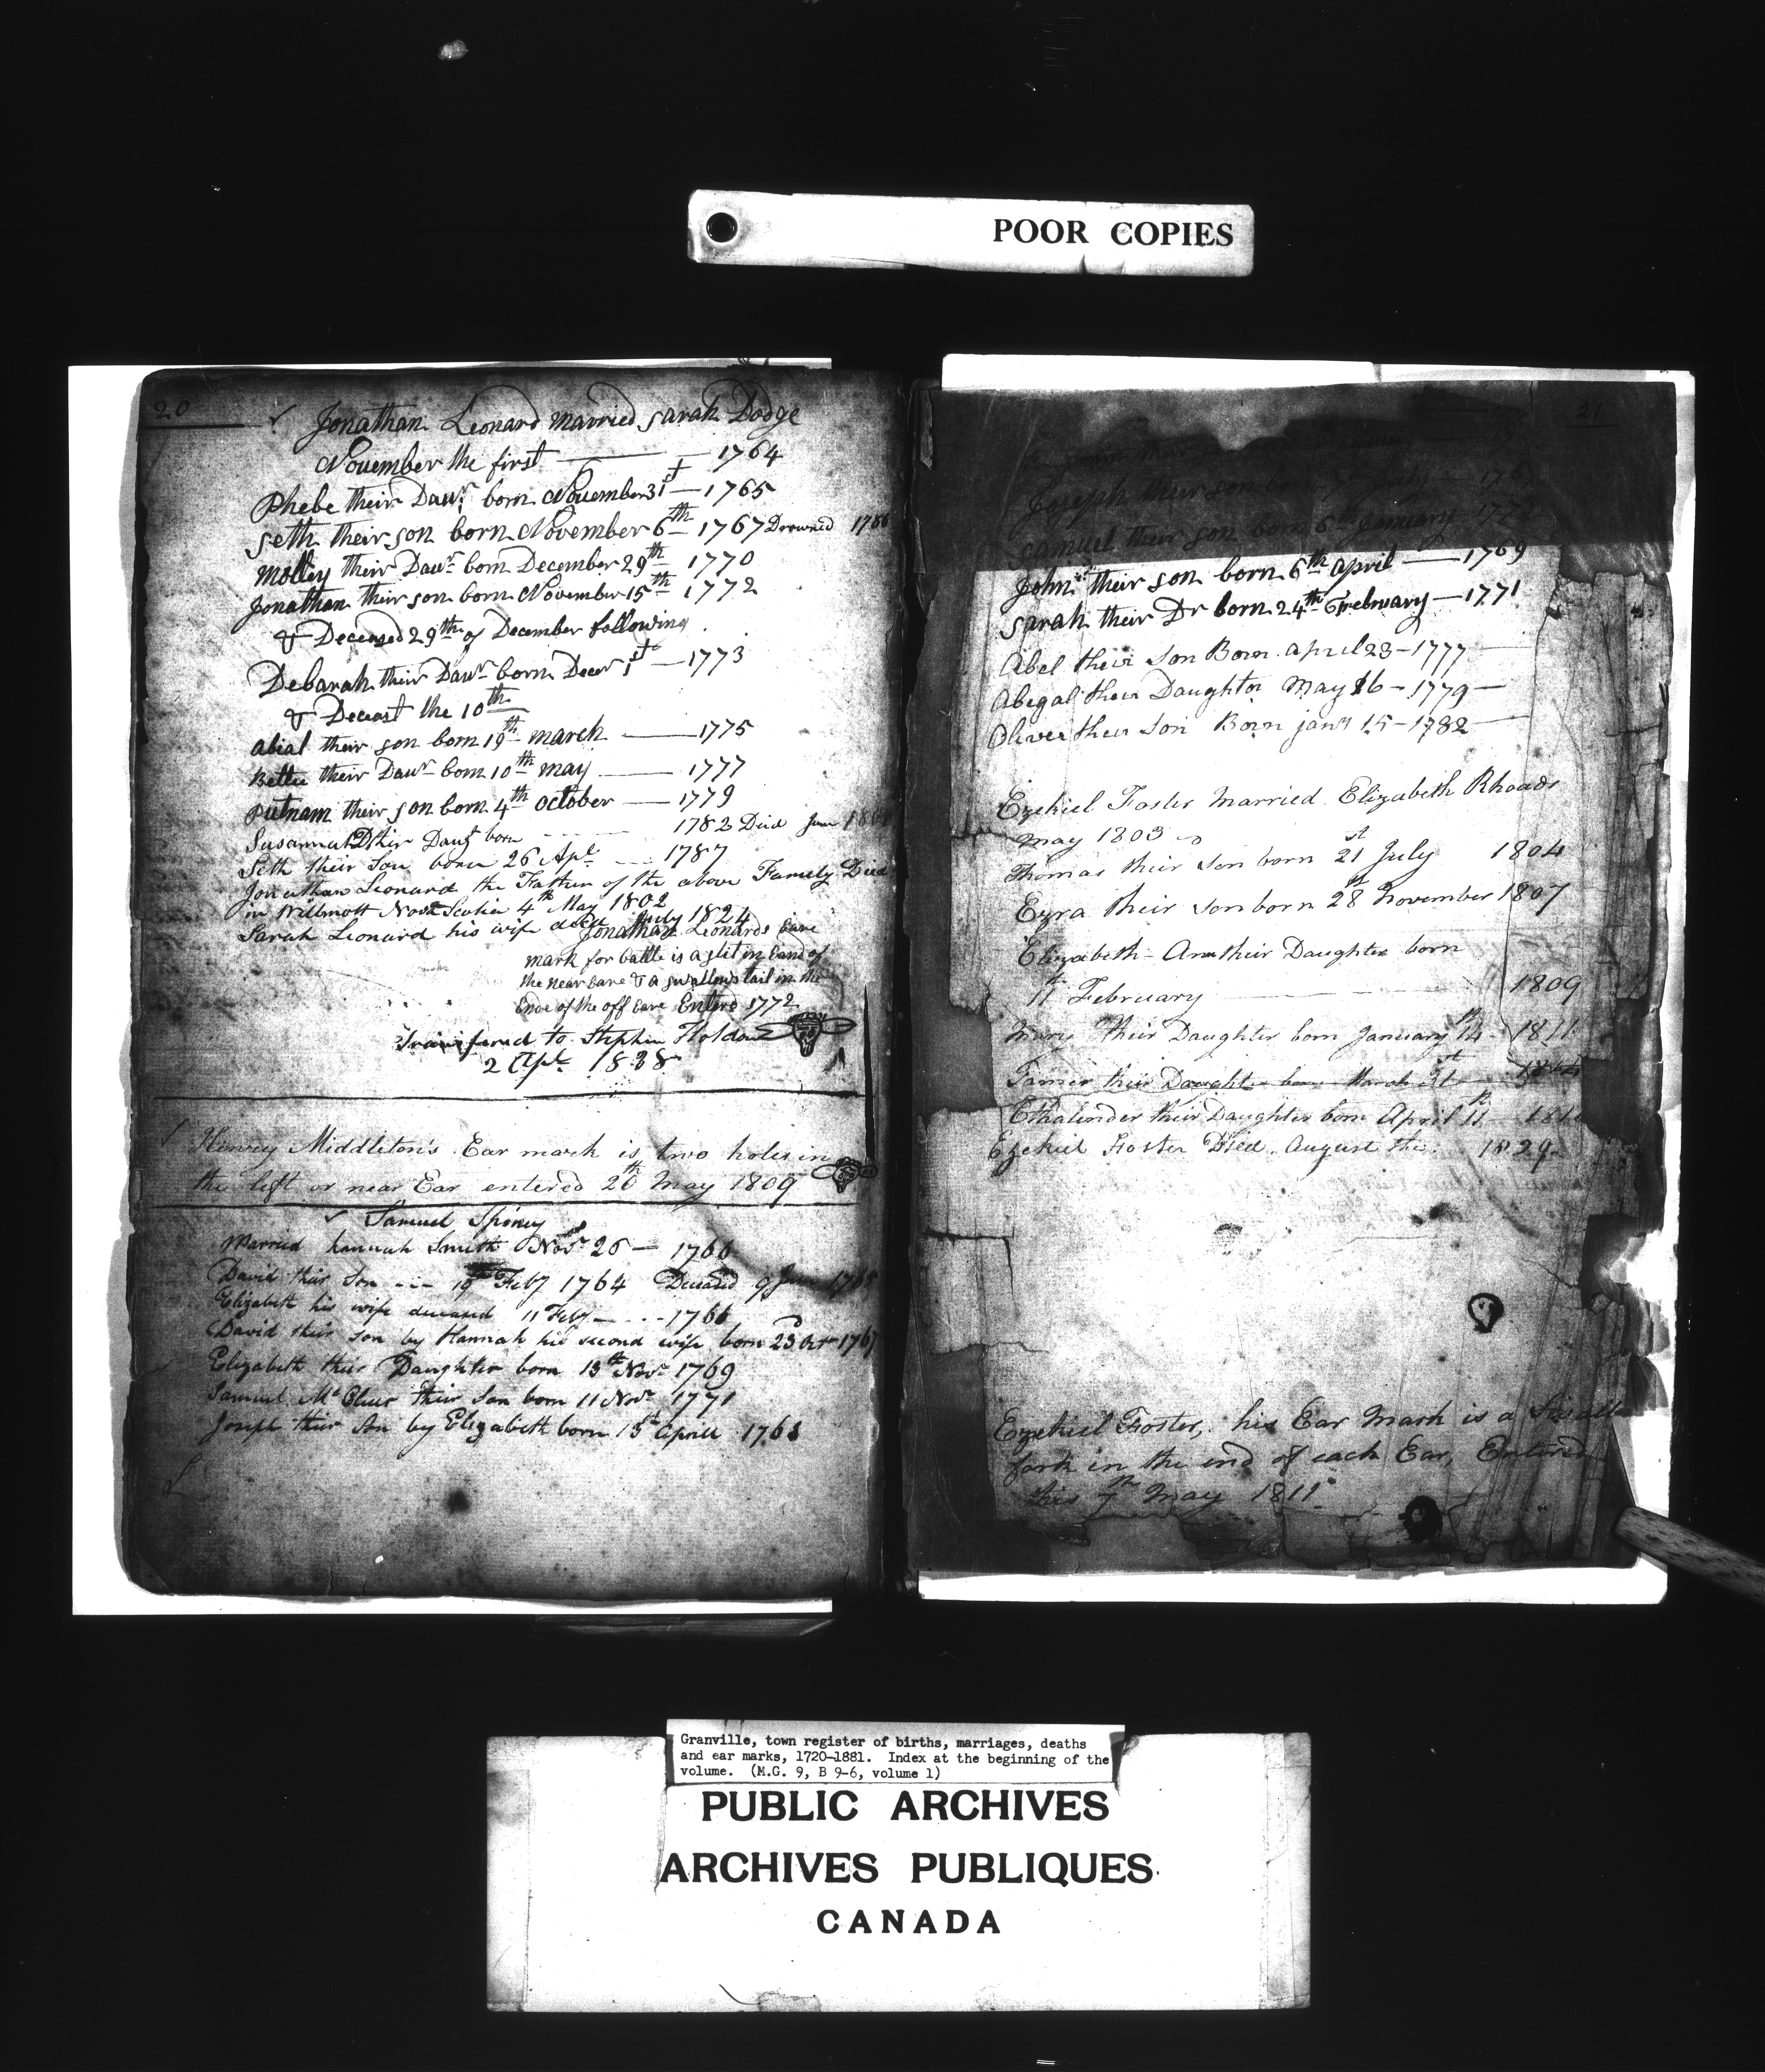 POOR COPIES
20
Jonathan Leonard married Sarah Dodge
November the first — 1764
Phebe their Dawr. born November 31st — 1765
Seth their son born November 6th — 1767 Drowned 1786
Molley their Dawr. born December 29th 1770
Jonathan their son born November 15th 1772
& Deceased 29th of December following
Debarah their Dawr born Decer 1st — 1773
& Deceast the 10th
Abial their son born 19th march — 1775
Bettee their Dawr born 10th may — 1777
Putnam their son born 4th October — 1779
Susannah their Daugt born 1782 Died June
Seth their Son born 26 Apl. 1787
Jonathan Leonard the Father of the above Family Died
in Willmott Nova Scotia 4th May 1802
Sarah Leonard his wife July 1824
Jonathan Leonards Eare
mark for Cattle is a slit in Eand of
the near Eare & a swallows tail in the
Ende of the off Eare Entere 1772
Transfered to Stephen
2 Apl. 1838
Henry Middleton's Ear mark is two holes in
the left or near Ear entered 20th May 1809
Samuel
Married hannah Smith Novr 26 — 1766
David their Son 19th Feby 1764 Deceased 9
Elizabeth his wife deceased 11 Feby — 1766
David their Son by Hannah his second wife born 23 Octr 1767
Elizabeth their Daughter born 13th Novr. 1769
Samuel Mc their Son born 11 Novr 1771
Joseph their Son by Elizabeth born 15t Aprill 1763
21
Joseph their son
Samuel their son born 6th January
John their son born 6th april — 1769
Sarah their Dr born 24th February — 1771
Abel their Son Born april 23 — 1777 —
Abegal their Daughter May 16 — 1779 —
Oliver their Son Born jany 15 — 1782 —
Ezekiel Foster Married Elizabeth Rhoads
may 1803
Thomas their Son born 21st July 1804
Ezra their Son born 28th November 1807
Elizabeth-Ann their Daughter born
11th February 1809
Mary their Daughter born January 14th 1811
their Daught born March 31st
their Daughter born April 11th
Ezekiel Foster Died August the 1829
Ezekiel Foster, his Ear Mark is a
fork in the end of each Ear, Entered
this 7th May 1811
Granville, town register of births, marriages, deaths
and ear marks, 1720-1881. Index at the beginning of the
volume. (M.G. 9, B 9-6, volume 1)
PUBLIC ARCHIVES
ARCHIVES PUBLIQUES
CANADA